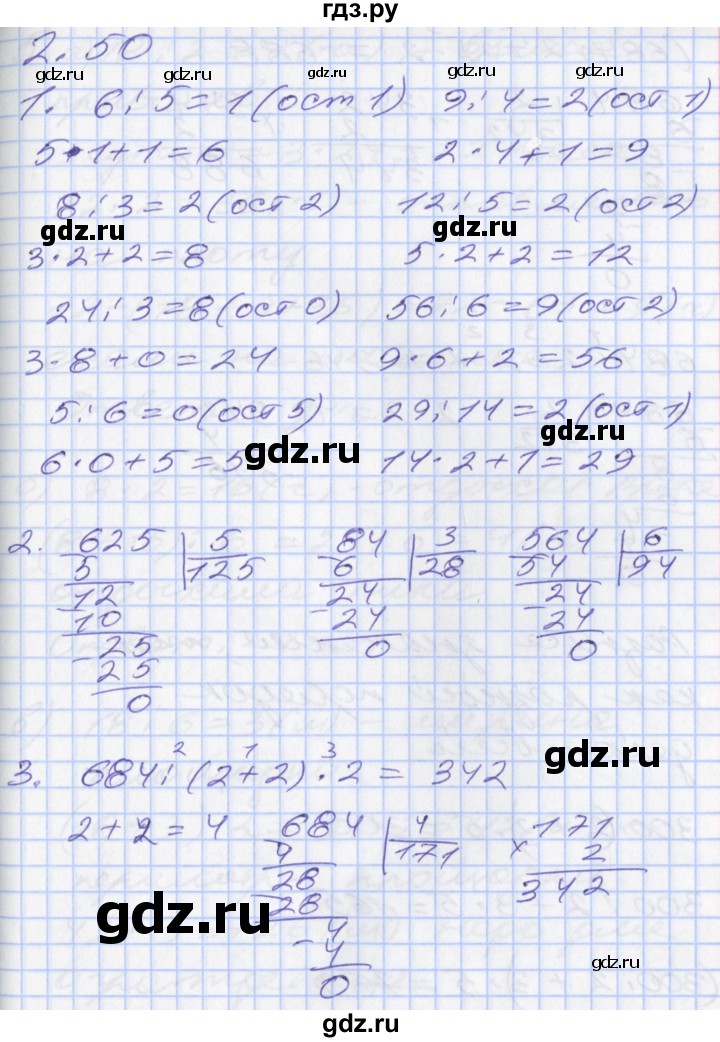 гдз.ру
2.50
gdz.ru gdz.ru gdz.ru
1. 6:5=1(ост 1) 9:4=2(ост 1)
5·1+1=6 2·4+1=9
8:3=2(ост 2) 12:5=2(ост 2)
gdz.ru gdz.ru
3·2+2=8 5·2+2=12
24:3=8(ост 0) 56:6=9(ост 2)
3·8+0=24 9·6+2=56
5:6=0(ост 5) 29:14=2(ост 1)
gdz.ru gdz.ru
6·0+5=5 14·2+1=29
2. 625 5 84 3 564 6
5 125 6 28 54 94
12 24 24
10 24 24
25 0 0
25
0
2 1 3
3. 684:(2+2)·2= 342
gdz.ru
2+2=4 684 4 171
4 171 × 2
28 342
28
gdz.ru
4
4
gdz.ru
0
gdz.ru